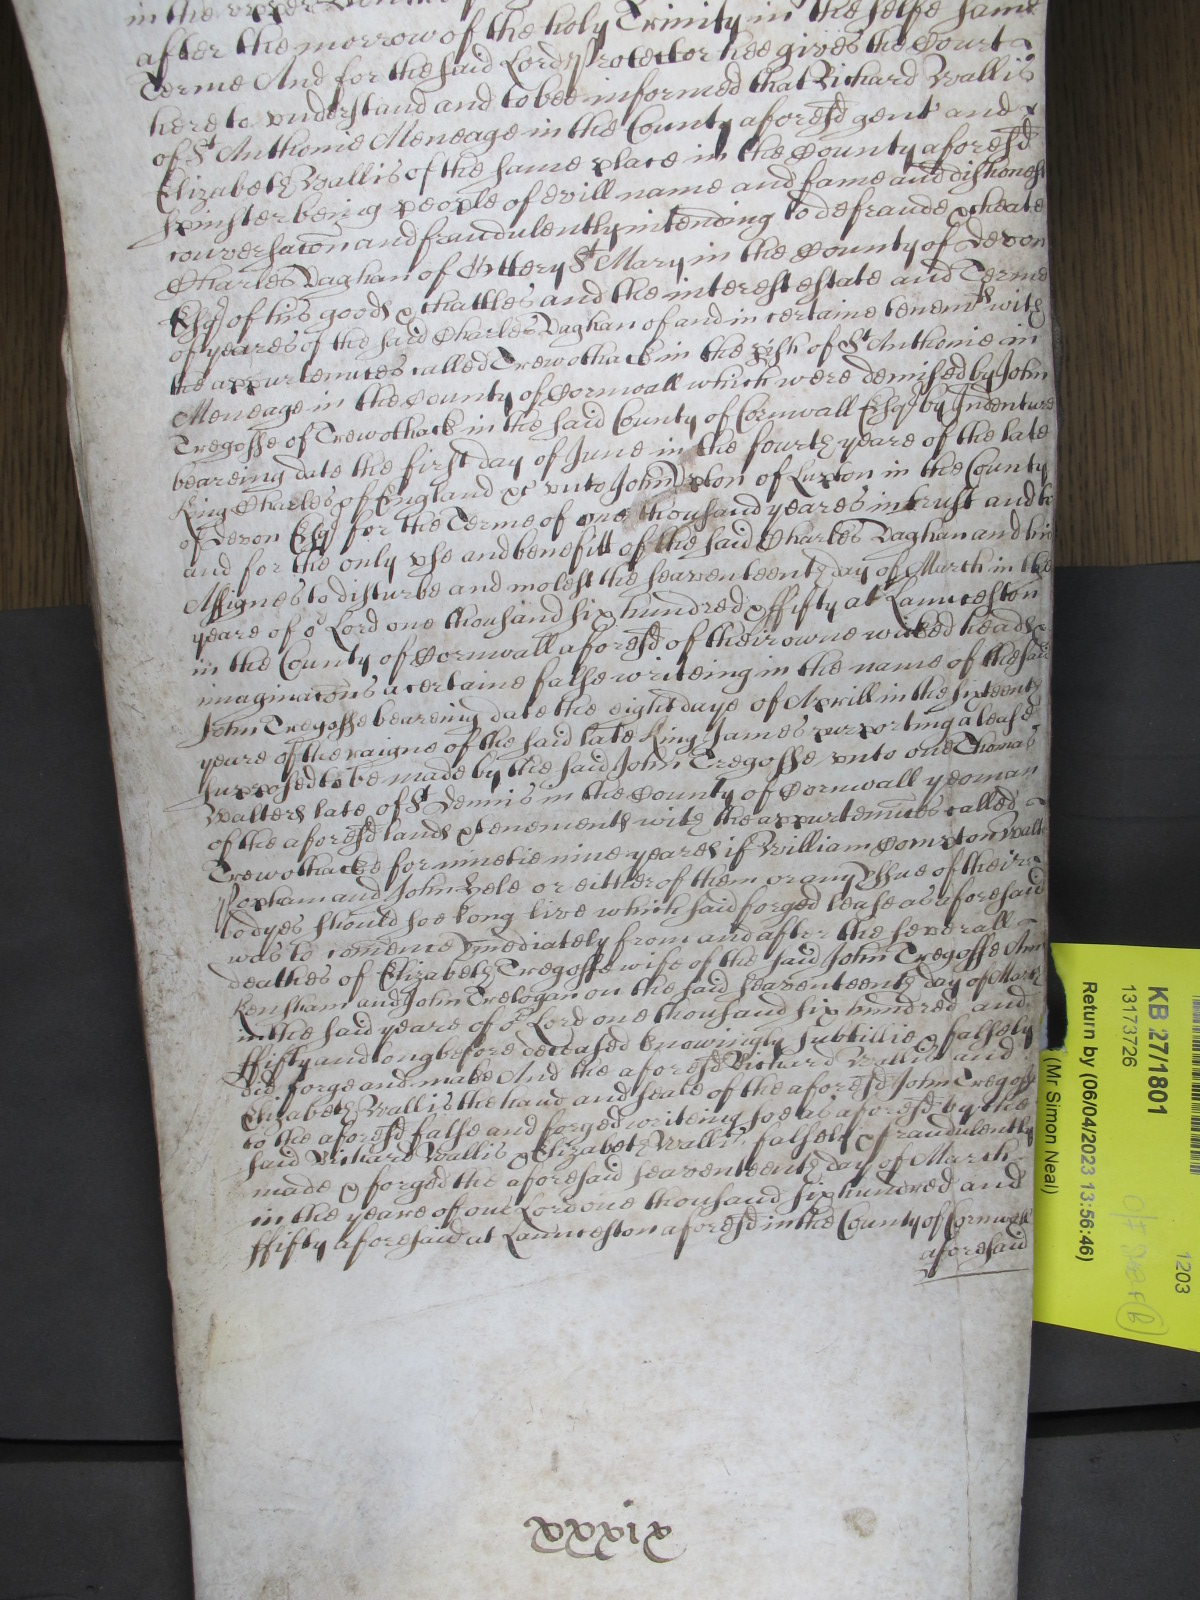 in the upper
after the morrow of the holy Trinity in the selfe same
Terme And for the said Lord Protector hee gives the Court
here to understand and to bee informed that Richard Wallis
of St Anthonie Meneage in the County aforesd gent and
Elizabeth Wallis of the same place in the County aforesd
spinster being people of evill name and fame and dishonest
conversacon and fraudulently intending to defraude & cheate
Charles Vaghan of Ottery St Mary in the County of Devon
Esqr of his goods & chattles and the interest estate and Terme
of yeares of the said Charles Vaghan of and in certaine tenemts with
the appurtennces called Trewothack in the pish of St Anthonie in
Meneage in the County of Cornwall which were demised by John
Tregosse of Trewothack in the said County of Cornwall Esqr by Indenture
beareing date the first day of June in the fourth yeare of the late
King Charles of England &c unto John of Luxton in the County
of Devon Esqr for the Terme of one thousand yeares in trust and to
and for the only use and benefitt of the said Charles Vaghan and his
Assignes to disturbe and molest the seaventeenth day of March in the
yeare of or Lord one thousand six hundred & fifty at Launceston
in the County of Cornwall aforesd of their owne wicked heads &
imaginacons a certaine false writeing in the name of the said
John Tregosse beareing date the eight daye of Aprill in the sixteenth
yeare of the raigne of the said late King James purporting a lease
supposed to be made by the said John Tregosse unto one Thomas
Walters late of St Dennis in the County of Cornwall yeoman
of the aforesd lands & tenements with the appurtennces called
Trewothacke for ninetie nine yeares if William Compton Walter
and John Hele or either of them or any Issue of their
bodyes should soe long live which said forged lease as aforesaid
was to comence imediately from and after the severall
deathes of Elizabeth Tregosse wife of the said John Tregosse Ann
Kensham and John Trelogan on the said seaventeenth day of March
in the said yeare of or Lord one thousand six hundred and
ffifty and long before deceased knowingly subtillie & falsely
did forge and make And the aforesd Richard Wallis and
Elizabeth Wallis the hand and seale of the aforesd John Tregosse
to the aforesd false and forged writeing soe as aforesd by the
said Richard Wallis & Elizabeth Wallis falsely & fraudulently
made & forged the aforesaid seaventeenth day of March
in the yeare of our Lord one thousand six hundred and
ffifty aforesaid at Launceston aforesd in the County of Cornwall
aforesaid
xxxix
KB 27/1801
13173726
Return by (06/04/2023 13:56:46)
(Mr Simon Neal)
1203